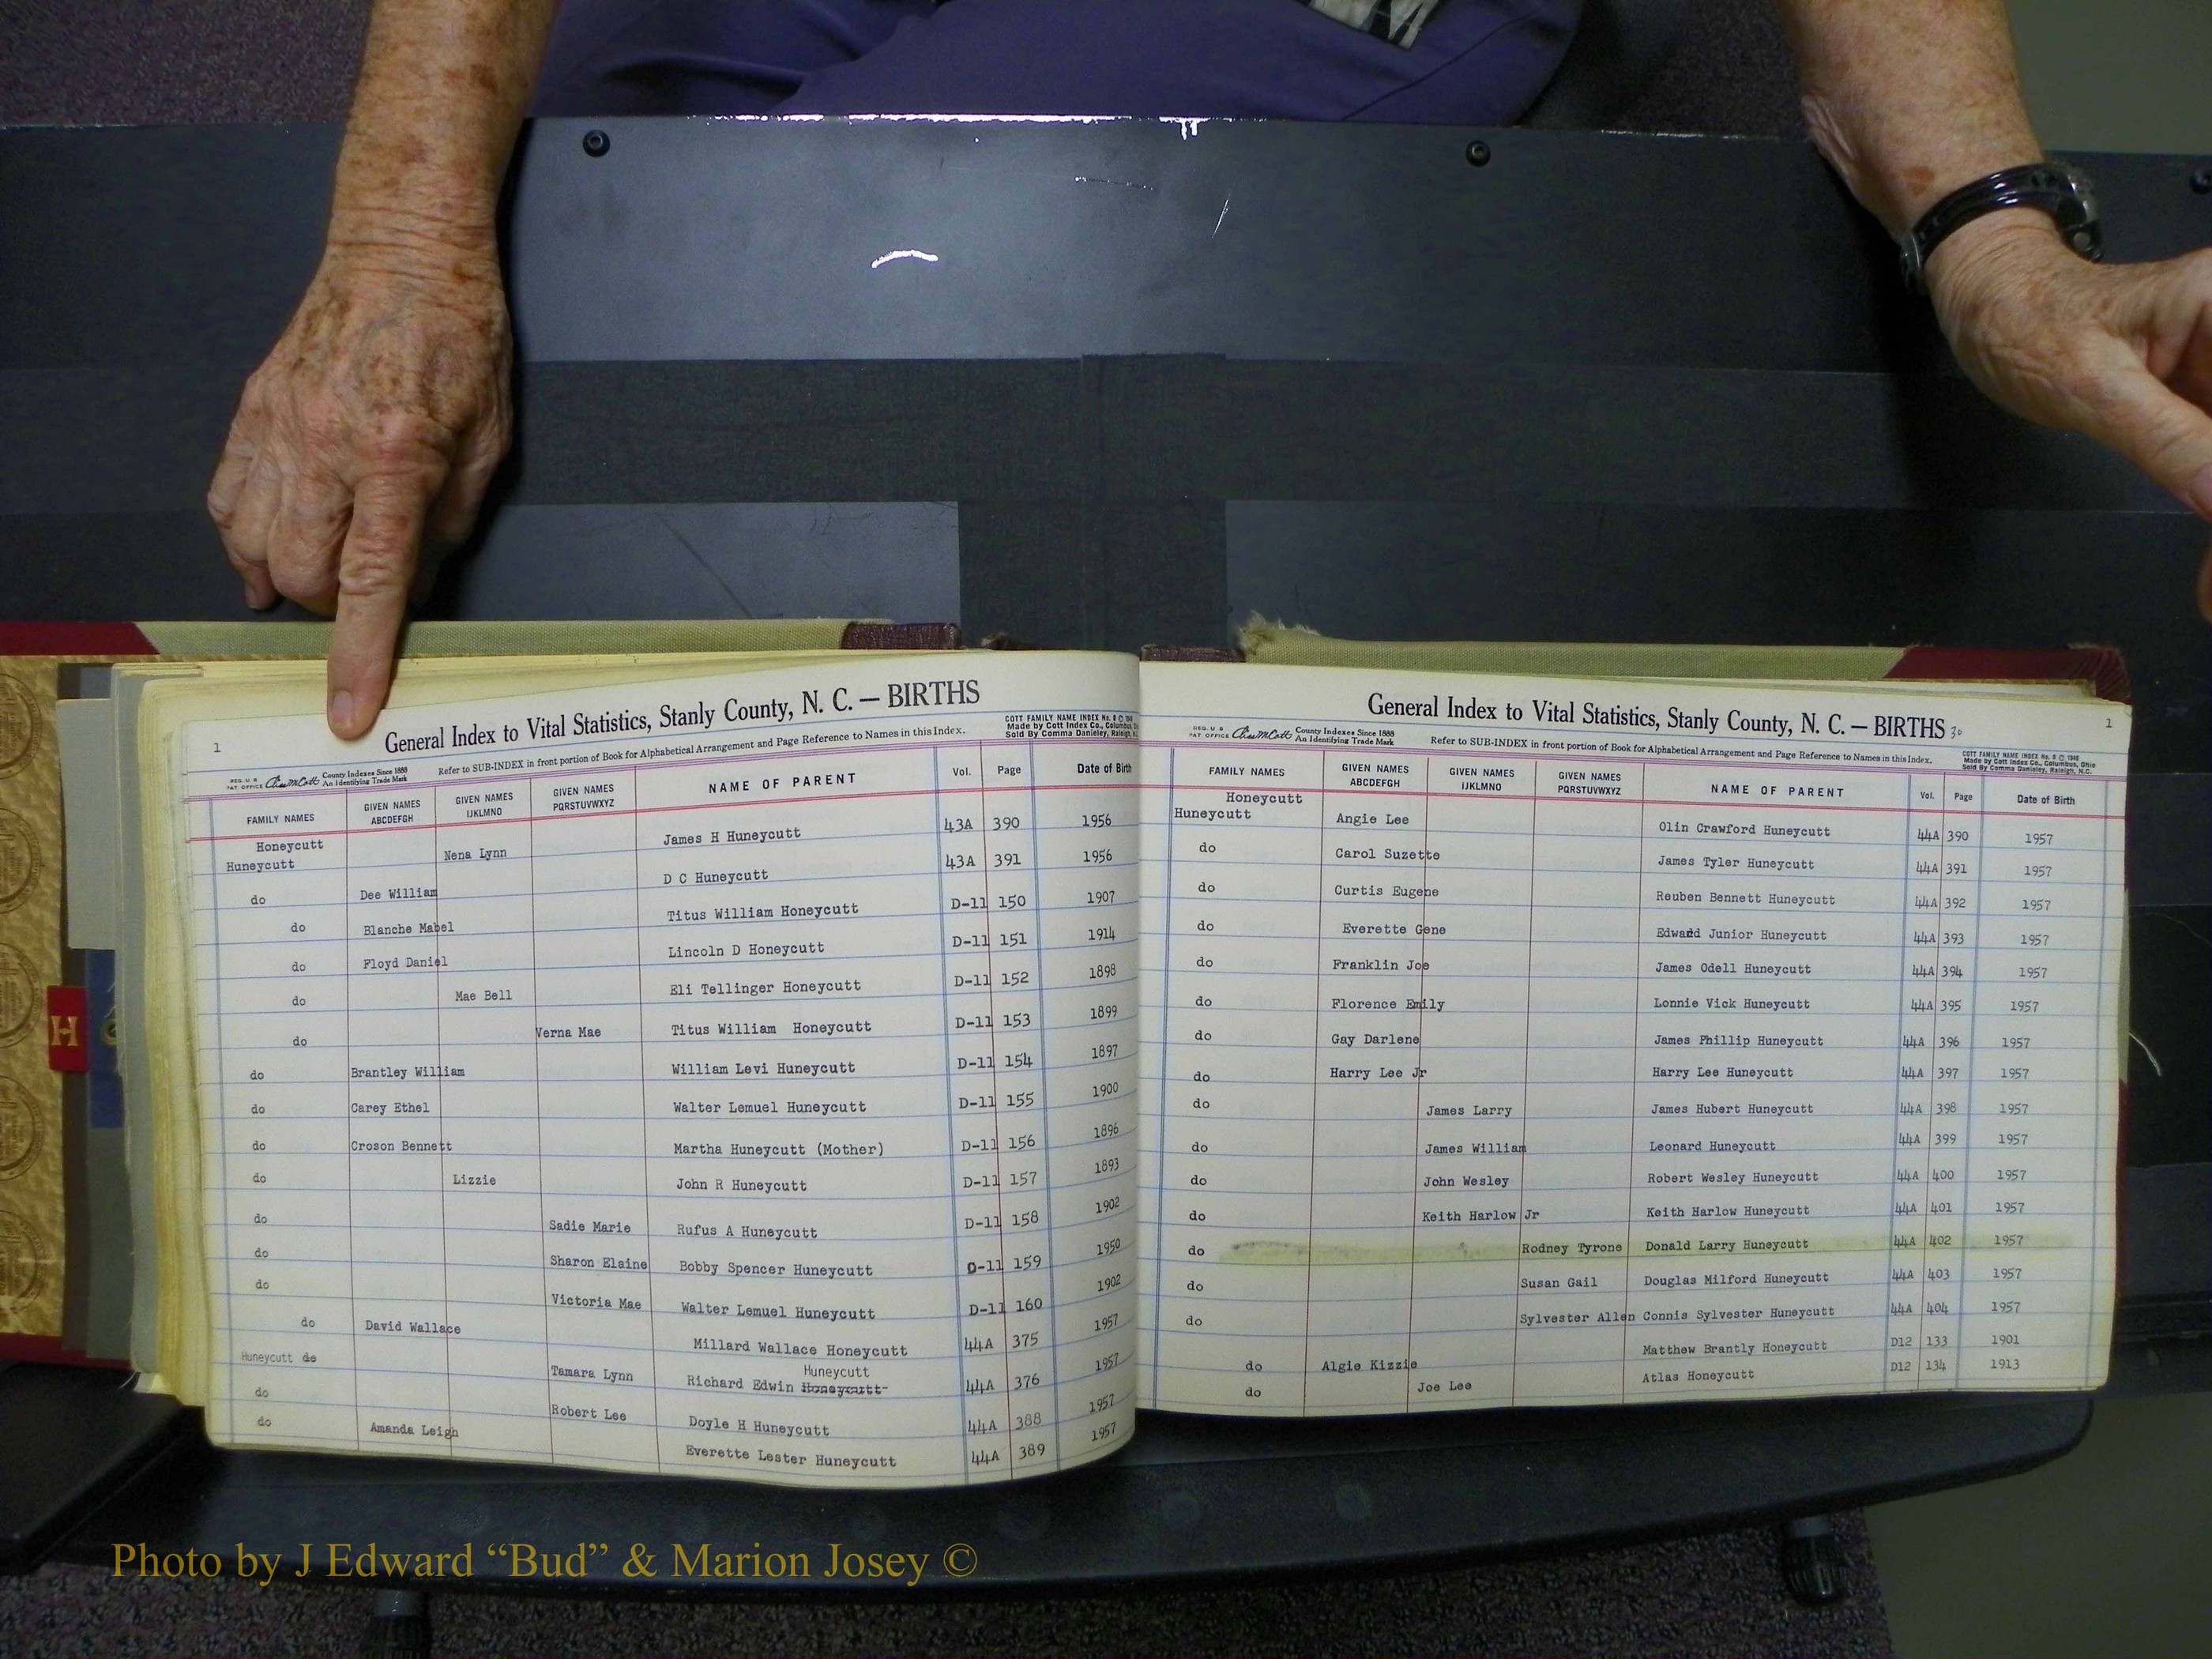 1
General Index to Vital Statistics, Stanly County, N. C. — BIRTHS
COTT FAMILY NAME INDEX No. 8 © 1948
Made by Cott Index Co., Columbus,
Sold By Comma Danieley, Raleigh,
REG. U S PAT OFFICE County Indexes Since 1888 An Identifying Trade Mark
Refer to SUB-INDEX in front portion of Book for Alphabetical Arrangement and Page Reference to Names in this Index.
FAMILY NAMES GIVEN NAMES ABCDEFGH GIVEN NAMES IJKLMNO GIVEN NAMES PQRSTUVWXYZ NAME OF PARENT Vol. Page Date of Birth
Honeycutt
Huneycutt Nena Lynn James H Huneycutt 43A 390 1956
do Dee William D C Huneycutt 43A 391 1956
do Blanche Mabel Titus William Honeycutt D-11 150 1907
do Floyd Daniel Lincoln D Honeycutt D-11 151 1914
do Mae Bell Eli Tellinger Honeycutt D-11 152 1898
do Verna Mae Titus William Honeycutt D-11 153 1899
do Brantley William William Levi Huneycutt D-11 154 1897
do Carey Ethel Walter Lemuel Huneycutt D-11 155 1900
do Croson Bennett Martha Huneycutt (Mother) D-11 156 1896
do Lizzie John R Huneycutt D-11 157 1893
do Sadie Marie Rufus A Huneycutt D-11 158 1902
do Sharon Elaine Bobby Spencer Huneycutt D-11 159 1950
do Victoria Mae Walter Lemuel Huneycutt D-11 160 1902
do David Wallace Millard Wallace Honeycutt 44A 375 1957
Huneycutt
Huneycutt do Tamara Lynn Richard Edwin Honeycutt 44A 376 1957
do Robert Lee Doyle H Huneycutt 44A 388 1957
do Amanda Leigh Everette Lester Huneycutt 44A 389 1957
General Index to Vital Statistics, Stanly County, N. C. — BIRTHS 30
1
REG. U S PAT OFFICE County Indexes Since 1888 An Identifying Trade Mark
Refer to SUB-INDEX in front portion of Book for Alphabetical Arrangement and Page Reference to Names in this Index.
COTT FAMILY NAME INDEX No. 8 © 1948
Made by Cott Index Co., Columbus, Ohio
Sold By Comma Danieley, Raleigh, N.C.
FAMILY NAMES GIVEN NAMES ABCDEFGH GIVEN NAMES IJKLMNO GIVEN NAMES PQRSTUVWXYZ NAME OF PARENT Vol. Page Date of Birth
Honeycutt
Huneycutt Angie Lee Olin Crawford Huneycutt 44A 390 1957
do Carol Suzette James Tyler Huneycutt 44A 391 1957
do Curtis Eugene Reuben Bennett Huneycutt 44A 392 1957
do Everette Gene Edward Junior Huneycutt 44A 393 1957
do Franklin Joe James Odell Huneycutt 44A 394 1957
do Florence Emily Lonnie Vick Huneycutt 44A 395 1957
do Gay Darlene James Phillip Huneycutt 44A 396 1957
do Harry Lee Jr Harry Lee Huneycutt 44A 397 1957
do James Larry James Hubert Huneycutt 44A 398 1957
do James William Leonard Huneycutt 44A 399 1957
do John Wesley Robert Wesley Huneycutt 44A 400 1957
do Keith Harlow Jr Keith Harlow Huneycutt 44A 401 1957
do Rodney Tyrone Donald Larry Huneycutt 44A 402 1957
do Susan Gail Douglas Milford Huneycutt 44A 403 1957
do Sylvester Allen Connis Sylvester Huneycutt 44A 404 1957
do Algie Kizzie Matthew Brantly Honeycutt D12 133 1901
do Joe Lee Atlas Honeycutt D12 134 1913
H
Photo by J Edward “Bud” & Marion Josey ©